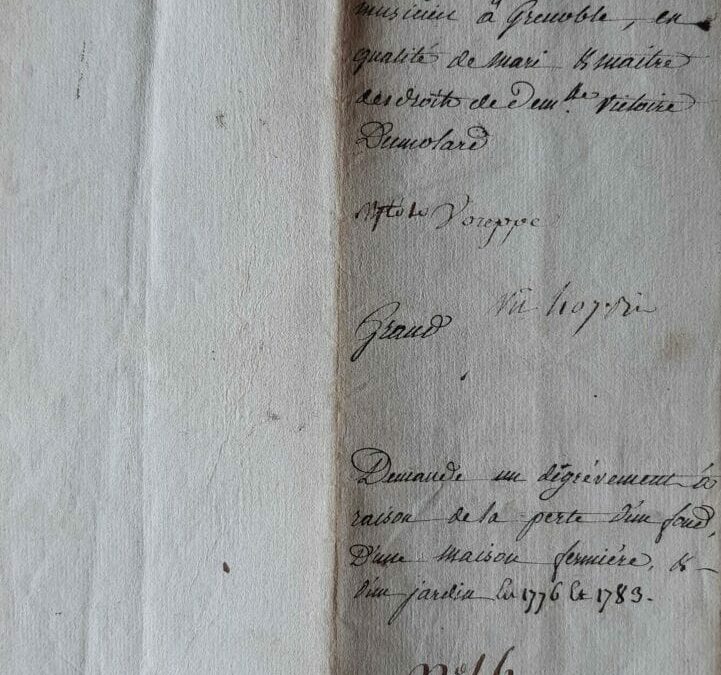 musicien à Grenoble, en
qualité de mari & maitre
des droits de dem.lle Victoire
Dumolard
Voreppe
vû
Grand
Demande un dégrévement à
raison de la perte d'un fond,
D'une maison fermiére, &
d'un jardin en 1776 et 1783.
nº 16